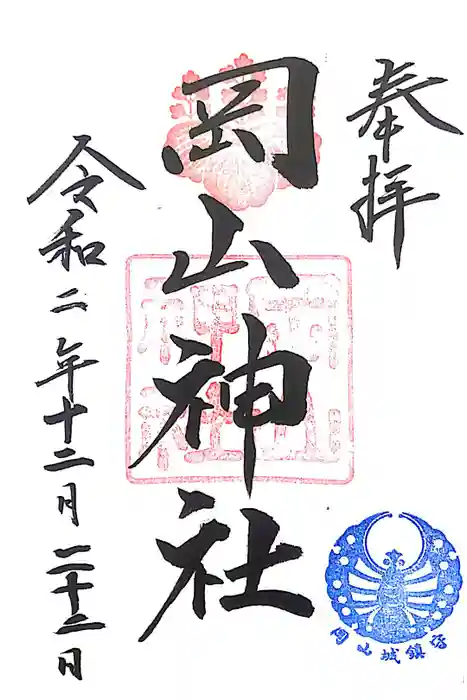 奉拝
岡山神社
岡山神社
令和二年十二月二十二日
岡山城鎮守